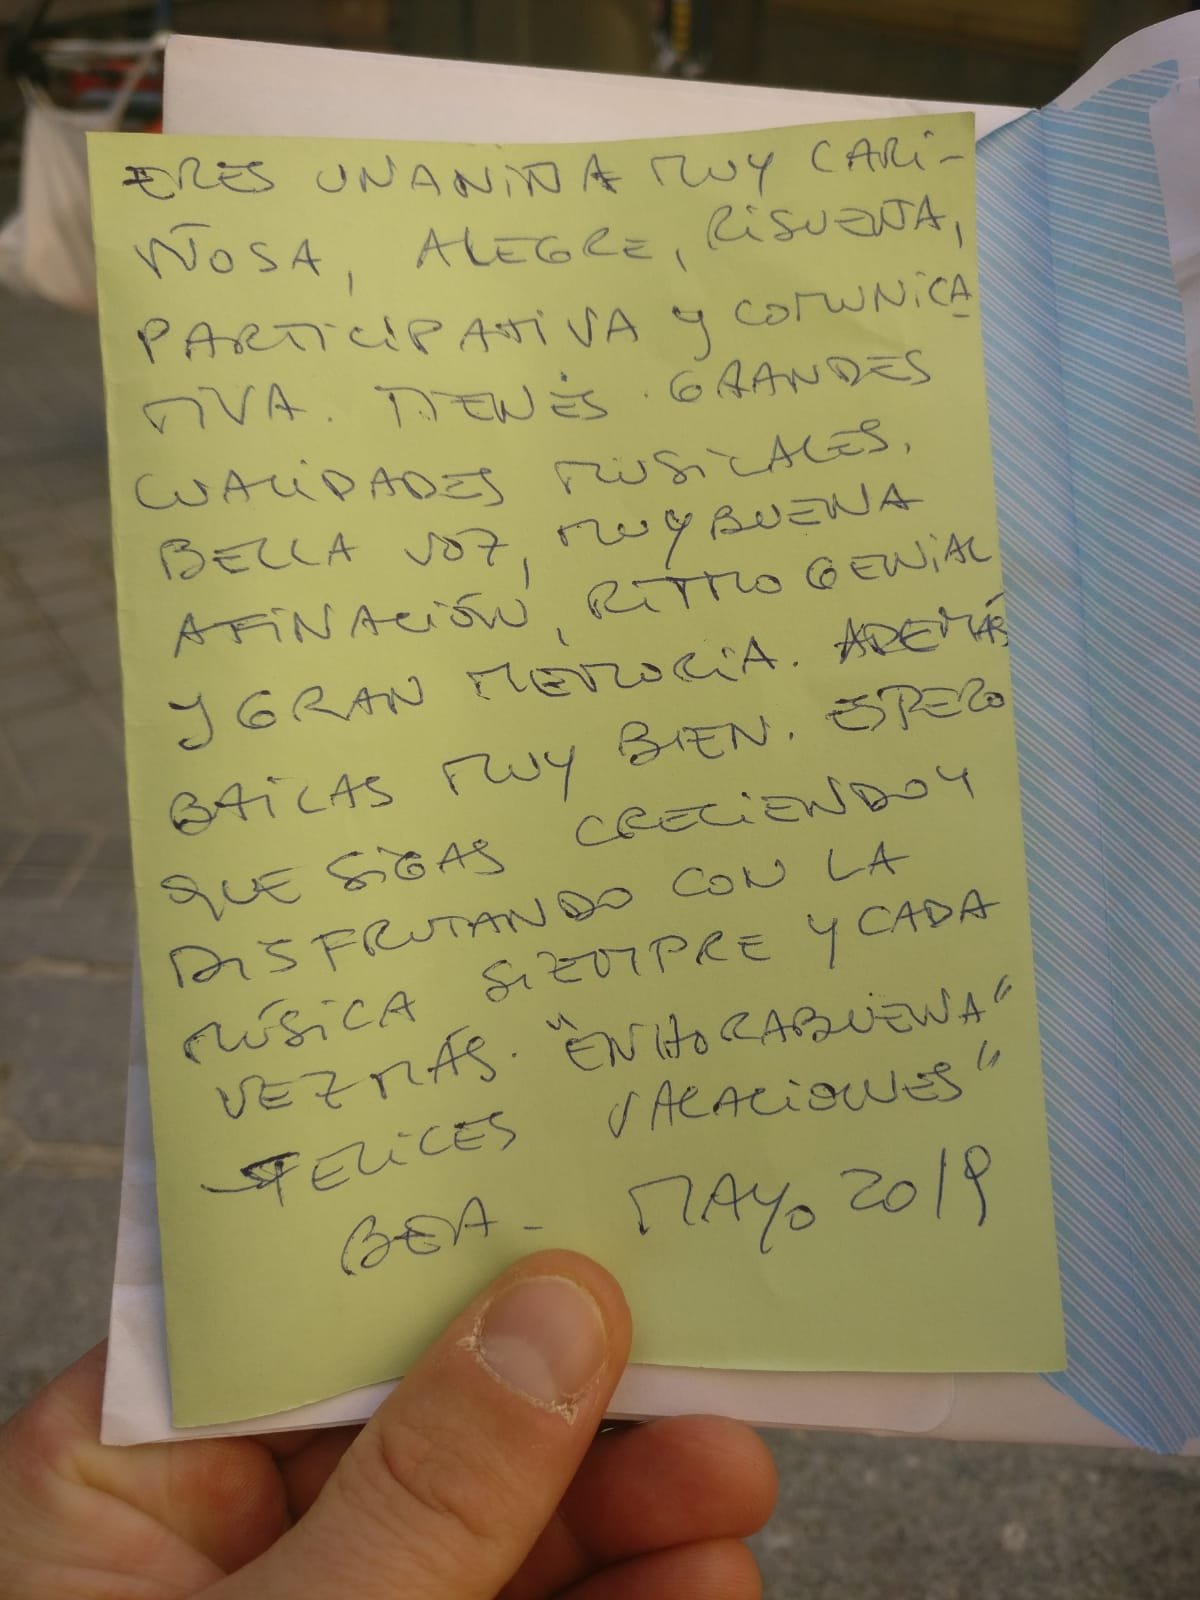 ERES UNA NIÑA MUY CARI-
ÑOSA, ALEGRE, RISUEÑA,
PARTICIPATIVA Y COMUNICA
TIVA. TIENES GRANDES
CUALIDADES MUSICALES.
BELLA VOZ, MUY BUENA
AFINACIÓN, RITMO GENIAL
Y GRAN MEMORIA. ADEMÁS
BAILAS MUY BIEN. ESPERO
QUE SIGAS CRECIENDO Y
DISFRUTANDO CON LA
MÚSICA SIEMPRE Y CADA
VEZ MÁS. "ENHORABUENA"
FELICES VACACIONES"
BEA - MAYO 2019